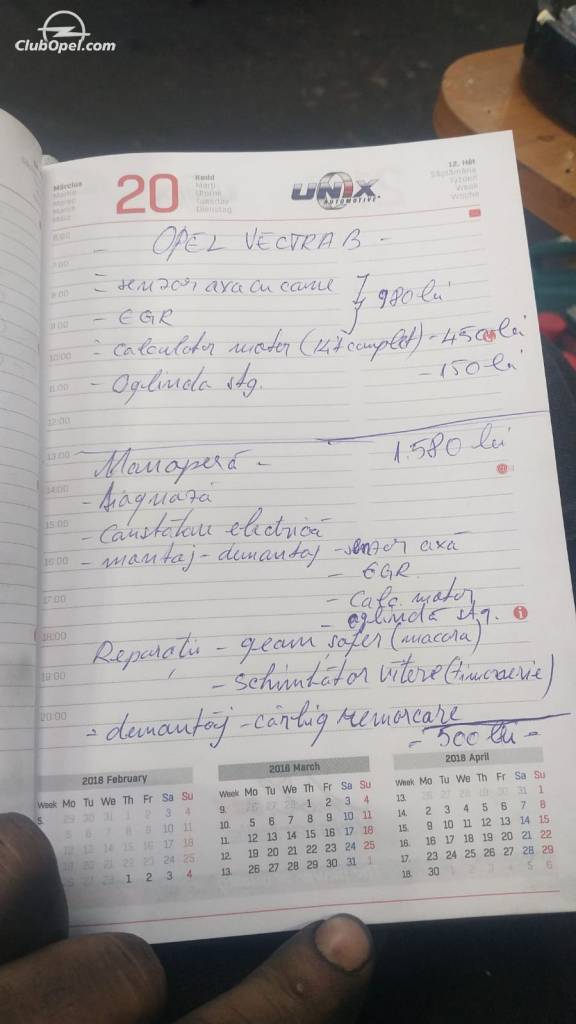 ClubOpel.com
Március
Martie
Marec
March
März
20
Kedd
Marţi
Utorok
Tuesday
Dienstag
UNIX
AUTOMOTIVE
12. Hét
Săptămâna
Týždeň
Week
Woche
- OPEL VECTRA B -
7:00
- senzor axa cu came } 980 lei
8:00
- EGR
9:00
- Calculator motor (147 complet) - 450 lei
10:00
- Oglinda stg. - 150 lei
11:00
12:00
13:00
1.580 lei
Manoperă -
14:00
- Diagnoză
15:00
- Constatare electrică
16:00
- montaj - demontaj - senzor axă
- EGR
17:00
- Calc. motor
- oglindă stg.
18:00
Reparatii - geam sofer (macara)
19:00
- Schimbător viteze (timonerie)
20:00
- demontaj - cârlig remorcare
- 500 lei -
2018 February
Week Mo Tu We Th Fr Sa Su
5. 29 30 31 1 2 3 4
5 6 7 8 9 10 11
12 13 14 15 16 17 18
19 20 21 22 23 24 25
26 27 28 1 2 3 4
2018 March
Week Mo Tu We Th Fr Sa Su
9. 26 27 28 1 2 3 4
10. 5 6 7 8 9 10 11
11. 12 13 14 15 16 17 18
12. 19 20 21 22 23 24 25
13. 26 27 28 29 30 31 1
2018 April
Week Mo Tu We Th Fr Sa Su
13. 26 27 28 29 30 31 1
14. 2 3 4 5 6 7 8
15. 9 10 11 12 13 14 15
16. 16 17 18 19 20 21 22
17. 23 24 25 26 27 28 29
18. 30 1 2 3 4 5 6